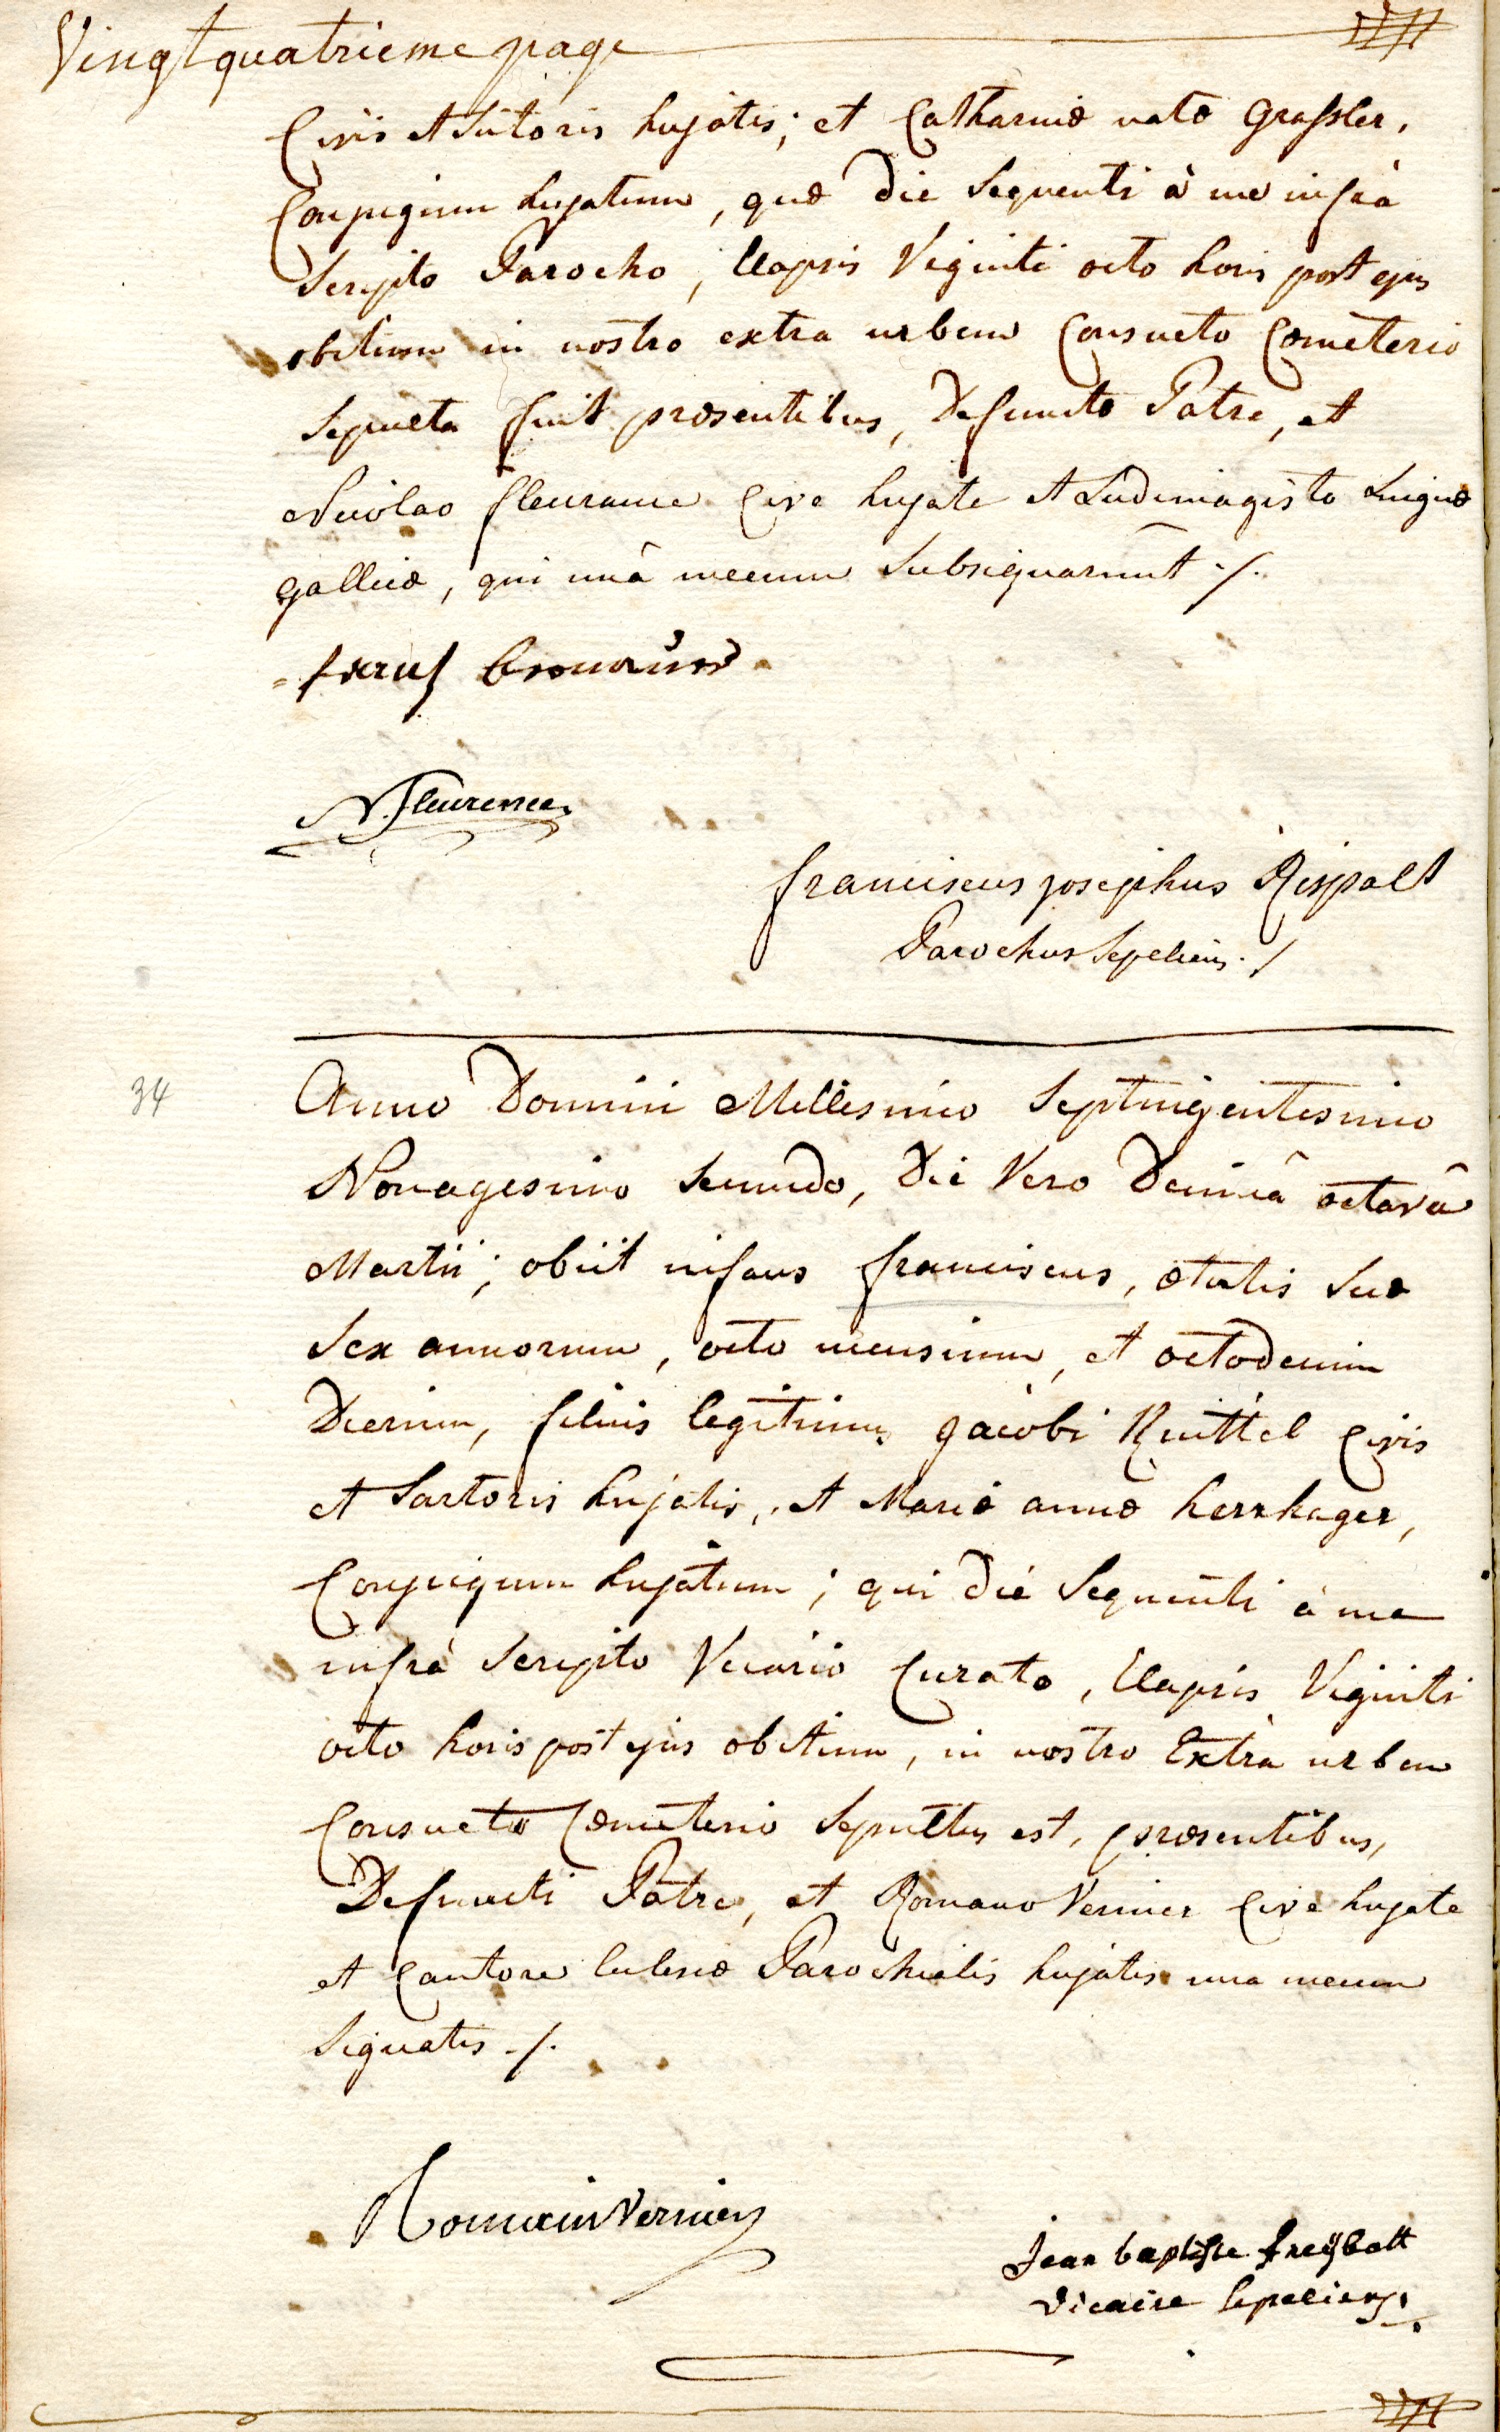 Vingtquatrieme page
Civis et Sutoris hujatis; et Catharinæ natæ Grassler,
Conjugum hujatum, quæ Die Sequenti à me infrà
Scripto Parocho, Elapsis Viginti octo horis post ejus
obitum in nostro extra urbem Consueto Cœmeterio
Sepulta fuit præsentibus, Defunctæ Patre, et
Nicolao fleurance Cive hujate et Ludimagistro Linguæ
gallicæ, qui unâ mecum Subsignarunt ./.
N. fleurence
franciscus josephus Rispalt
Parochus Sepeliens ./
34
Anno Domini Millesimo Septuigentesimo
Nonagesimo Secundo, Die Vero Decimâ octavâ
Martii; obiit infans franciscus, ætatis Suæ
Sex annorum, octo mensium, et octodecim
Dierum, filius legitimus jacobi Knittel Civis
et Sartoris hujatis, et Mariæ annæ herrhager,
Conjugum hujatum; qui die Sequenti à me
infrà Scripto Vicario Curato, Elapsis Viginti
octo horis post ejus obitum, in nostro Extrà urbem
Consueto Cœmeterio Sepultus est, præsentibus,
Defuncti Patre, et Romano Vernier Cive hujate
et Cantore Eclesiæ Parochialis hujatis una mecum
Signatis ./.
Romain Vernier
jean baptiste freÿbott
vicaire sepeliens